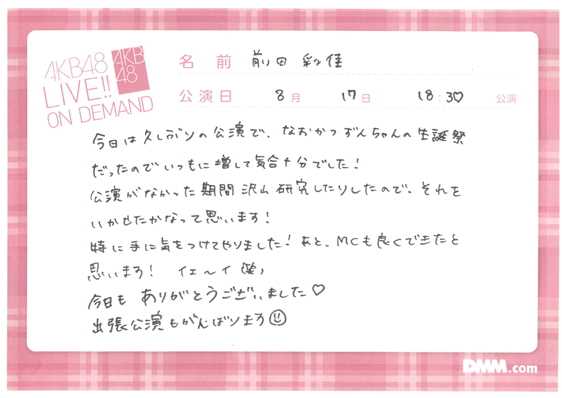 AKB48
LIVE!!
ON DEMAND
AKB
48
名前 前田 彩佳
公演日 8月 17日 18:30 公演
今日は久しぶりの公演で、なおかつずんちゃんの生誕祭
だったのでいつもに増して気合十分でした!
公演がなかった期間沢山研究したりしたので、それを
いかせたかなって思います!
特に手に気をつけてやりました!あと、MCも良くできたと
思います! イェ〜イ (笑)
今日も ありがとうございました♡
出張公演もがんばります
DMM.com